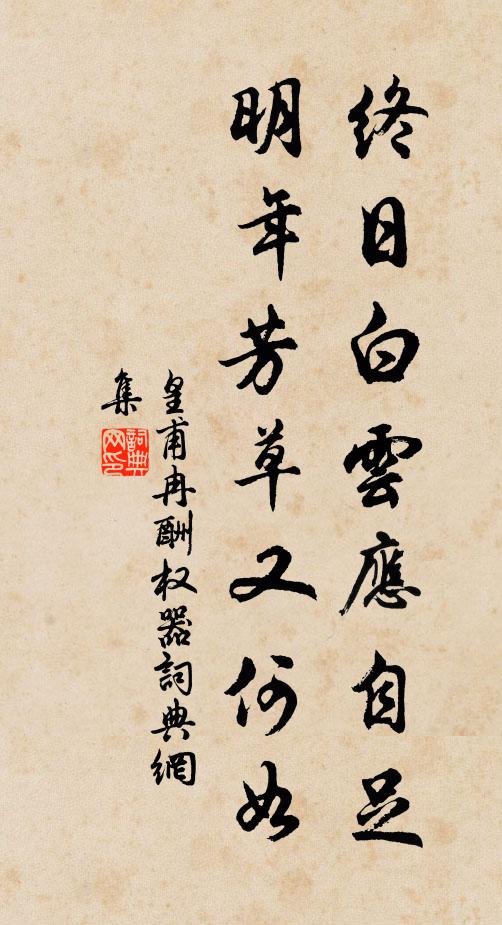 終日白雲應自足
明年芳草又何如
皇甫冉酬权器詞典網
集
詞典
网印